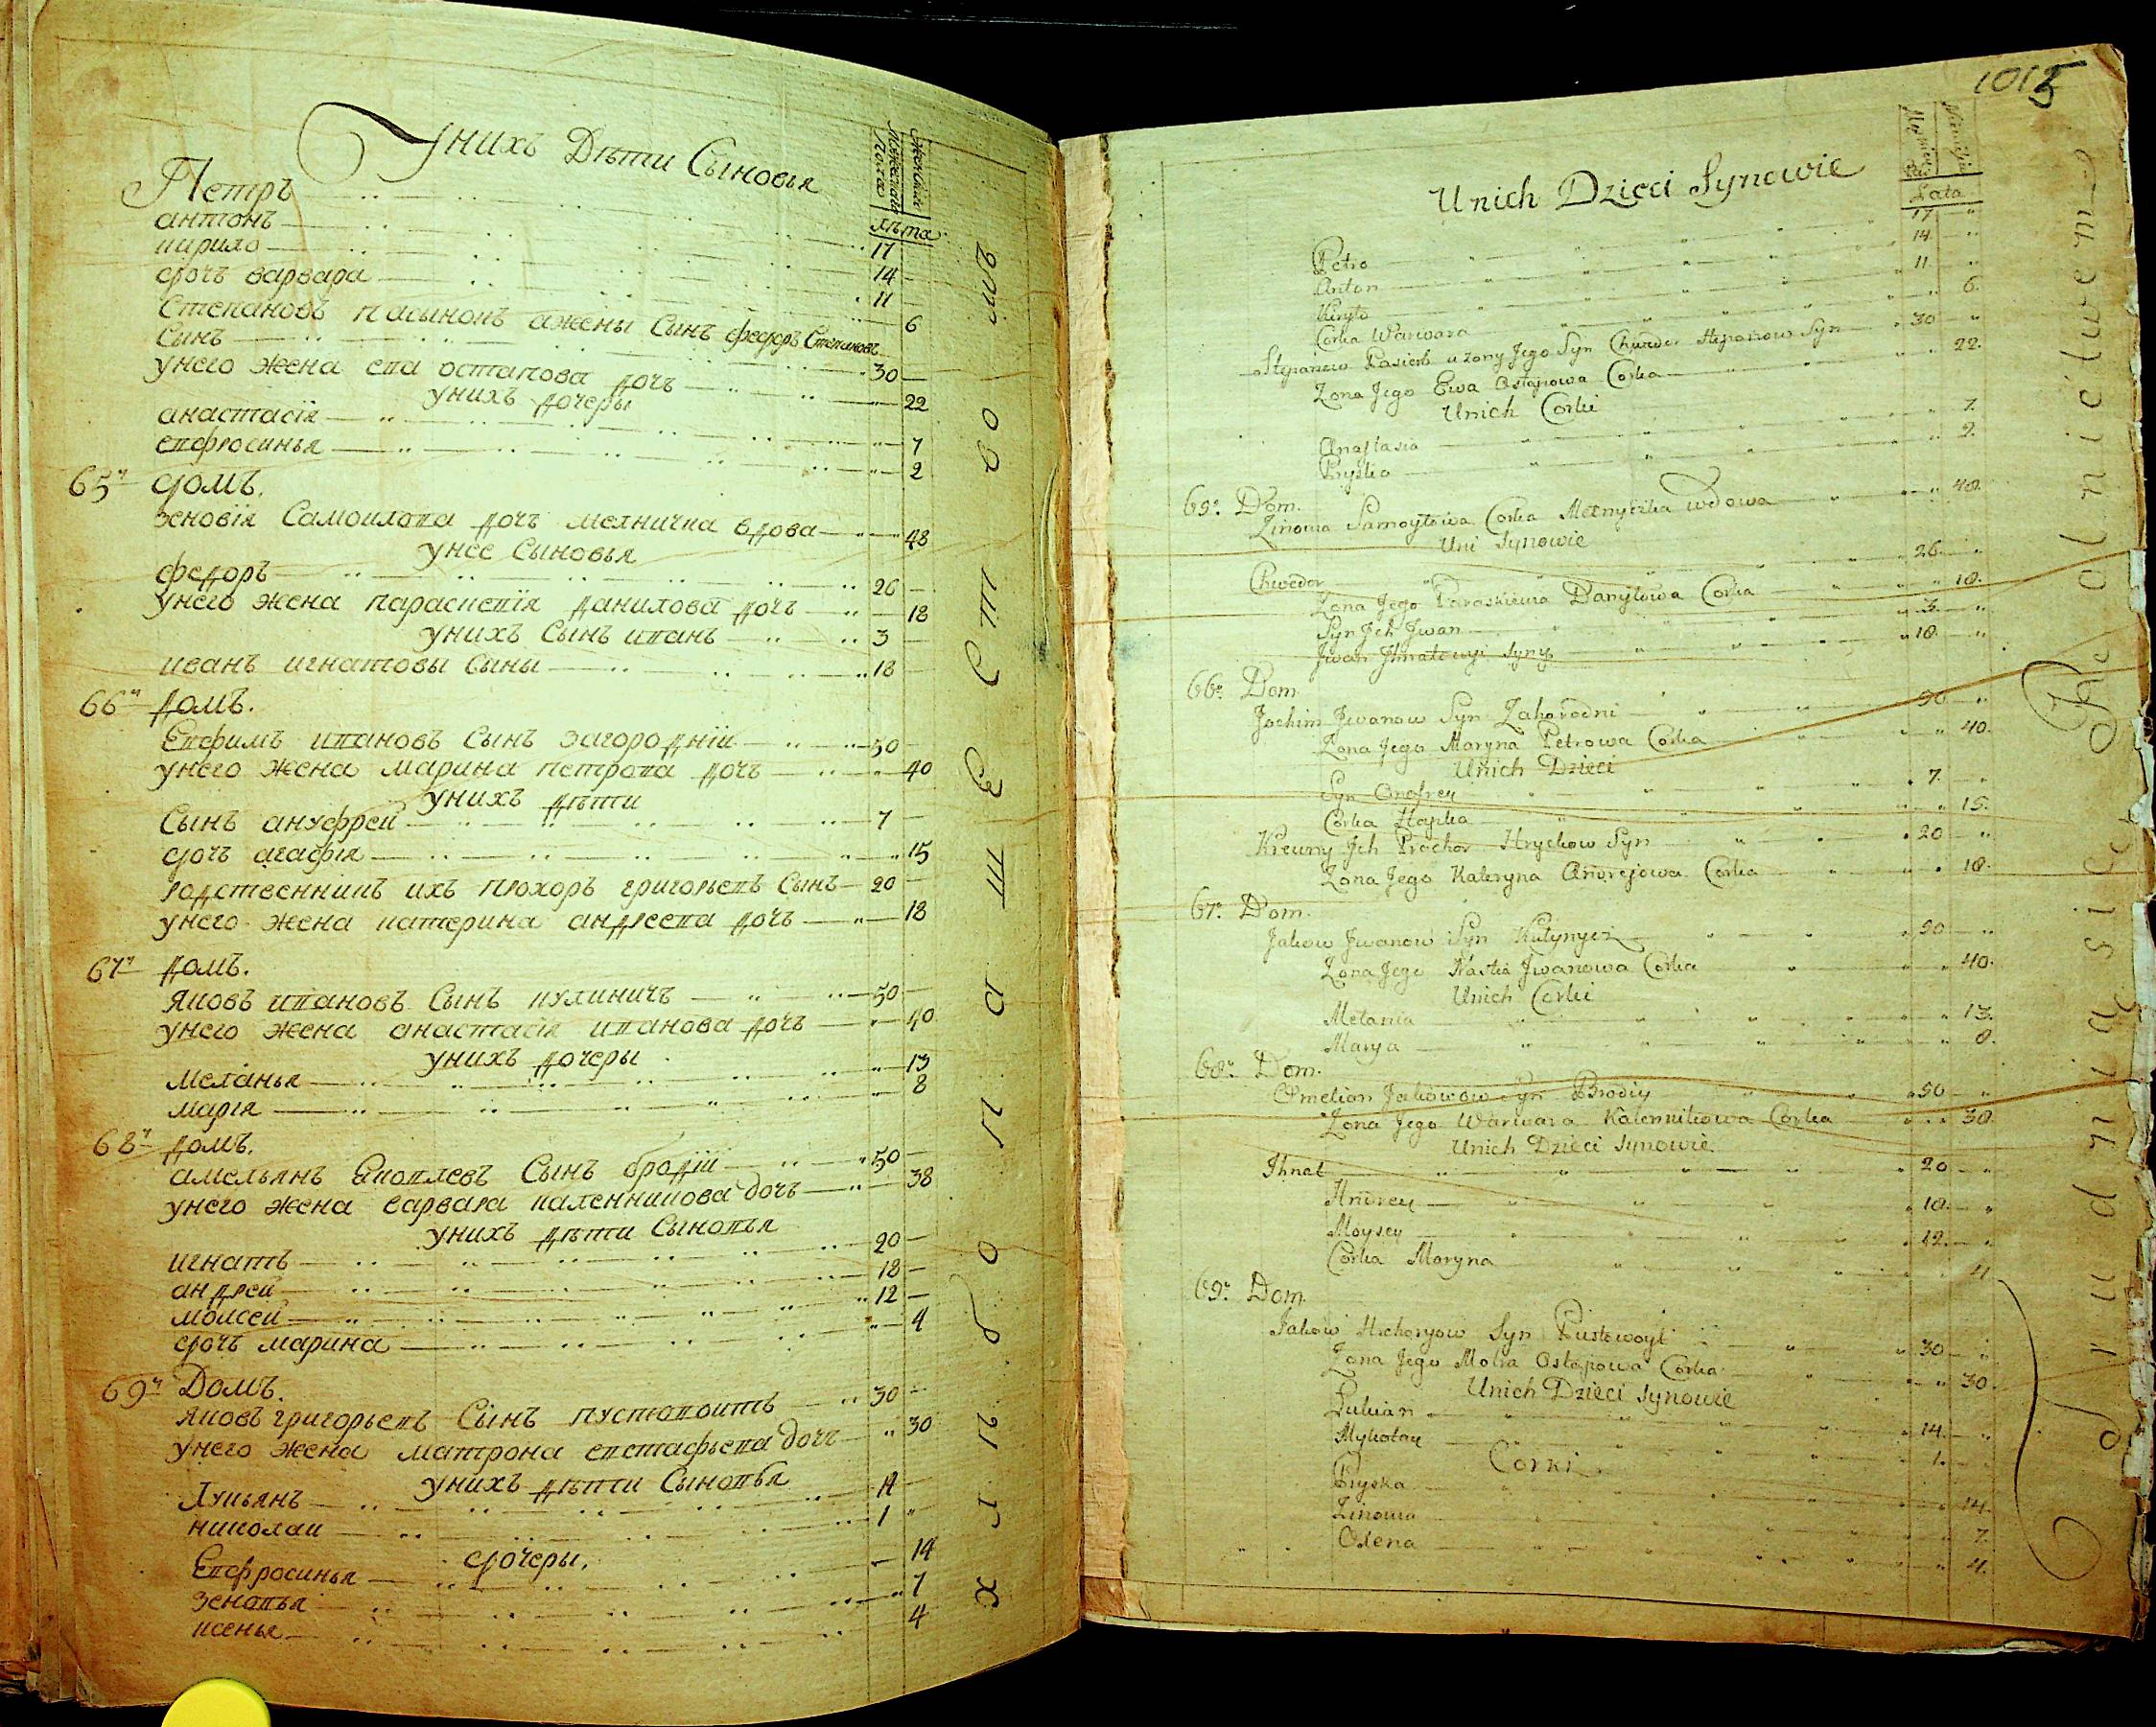 Унихъ Дѣти Сыновья
Мужеска Пола
Женскаго
Лѣта
Петръ 17
антонъ 14
кирило 11
дочъ варвара 6
Степановъ пасынокъ ажены Сынъ федоръ Степановъ
Сынъ 30
унего жена ева остапова дочъ 22
унихъ дочеры
анастасія 7
евфросинья 2
65й домъ.
зеновія Самоилова дочъ мелничка вдова 48
унее Сыновья
федоръ 26
унего жена параскевія данилова дочъ 18
унихъ Сынъ иванъ 3
иванъ игнатовы Сыны 18
66й домъ.
Евфимъ ивановъ Сынъ загородній 50
унего жена марина петрова дочъ 40
унихъ дѣти
Сынъ ануфрей 7
дочъ агафія 15
родственникъ ихъ прохоръ григорьевъ Сынъ 20
унего жена катерина андреева дочъ 18
67й домъ.
яковъ ивановъ Сынъ кулиничъ 50
унего жена анастасія иванова дочъ 40
унихъ дочеры
меланья 13
марія 8
68й домъ.
амельянъ Яковлевъ Сынъ бродій 50
унего жена варвара каленникова дочъ 38
унихъ дѣти Сыновья
игнатъ 20
андрей 18
моисей 12
дочъ марина 4
69й Домъ.
яковъ григорьевъ Сынъ пустовоитъ 30
унего жена матрона евстафьева дочъ 30
унихъ дѣти Сыновья
Лукьянъ 14
николаи 1
дочеры.
Евфросинья 14
зеновья 7
ксенья 4
1015
Unich Dzieci Synowie
Lata
Petro 17
Anton 14
Kiryło 11
Corka Warwara 6.
Stepanow Pasierb u żony Jego Syn Chwedor Stepanow Syn 30
Zona Jego Ewa Ostapowa Corka 22.
Unich Corki
Anastasia 7.
Pryska 2.
65. Dom.
Zinowia Samoyłowa Corka Mełnyczka wdowa 48.
Uni Synowie
Chwedor 26
Zona Jego Paraskiewia Danyłowa Corka 18.
Syn Jch Jwan 3
Jwan Jhnatowyi Syny 18.
66. Dom.
Jachim Jwanow Syn Zahorodni 50
Zona Jego Maryna Petrowa Corka 40.
Unich Dzieci
Syn Onofrey 7
Corka Hapka 15.
Krewny Jch Prochor Hryckow Syn 20
Zona Jego Kateryna Andrejowa Corka 18.
67. Dom.
Jakow Jwanow Syn Kulynycz 50
Zona Jego Nastia Jwanowa Corka 40.
Unich Corki
Mełania 13.
Marya 8.
68. Dom.
Omelian Jakowow Syn Brodiy 50
Zona Jego Warwara Kalennikowa Corka 38.
Unich Dzieci Synowie
Jhnat 20
Andrey 18.
Moysey 12.
Corka Maryna 4
69. Dom.
Jakow Hrehoryow Syn Pustowoyt 30
Zona Jego Motra Ostapowa Corka 30.
Unich Dzieci Synowie
Łukian 14.
Mykołay 1.
Corki
Pryska 14.
Zinowia 7.
Oxena 4.